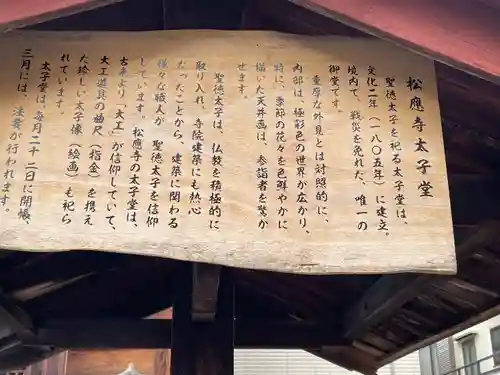 松應寺太子堂
聖徳太子を祀る太子堂は、
文化二年（一八〇五年）に建立。
境内で、戦災を免れた、唯一の
御堂です。
重厚な外見とは対照的に、
内部は、極彩色の世界が広がり、
特に、季節の花々を色鮮やかに
描いた天井画は、参詣者を驚か
せます。
聖徳太子は、仏教を積極的に
取り入れ、寺院建築にも熱心
だったことから、建築に関わる
様々な職人が、聖徳太子を信仰
しています。松應寺の太子堂は、
古来より「大工」が信仰していて、
大工道具の曲尺（指金）を携え
た珍しい太子像（絵画）も祀ら
れています。
太子堂は、毎月二十二日に開帳、
三月には、法要が行われます。